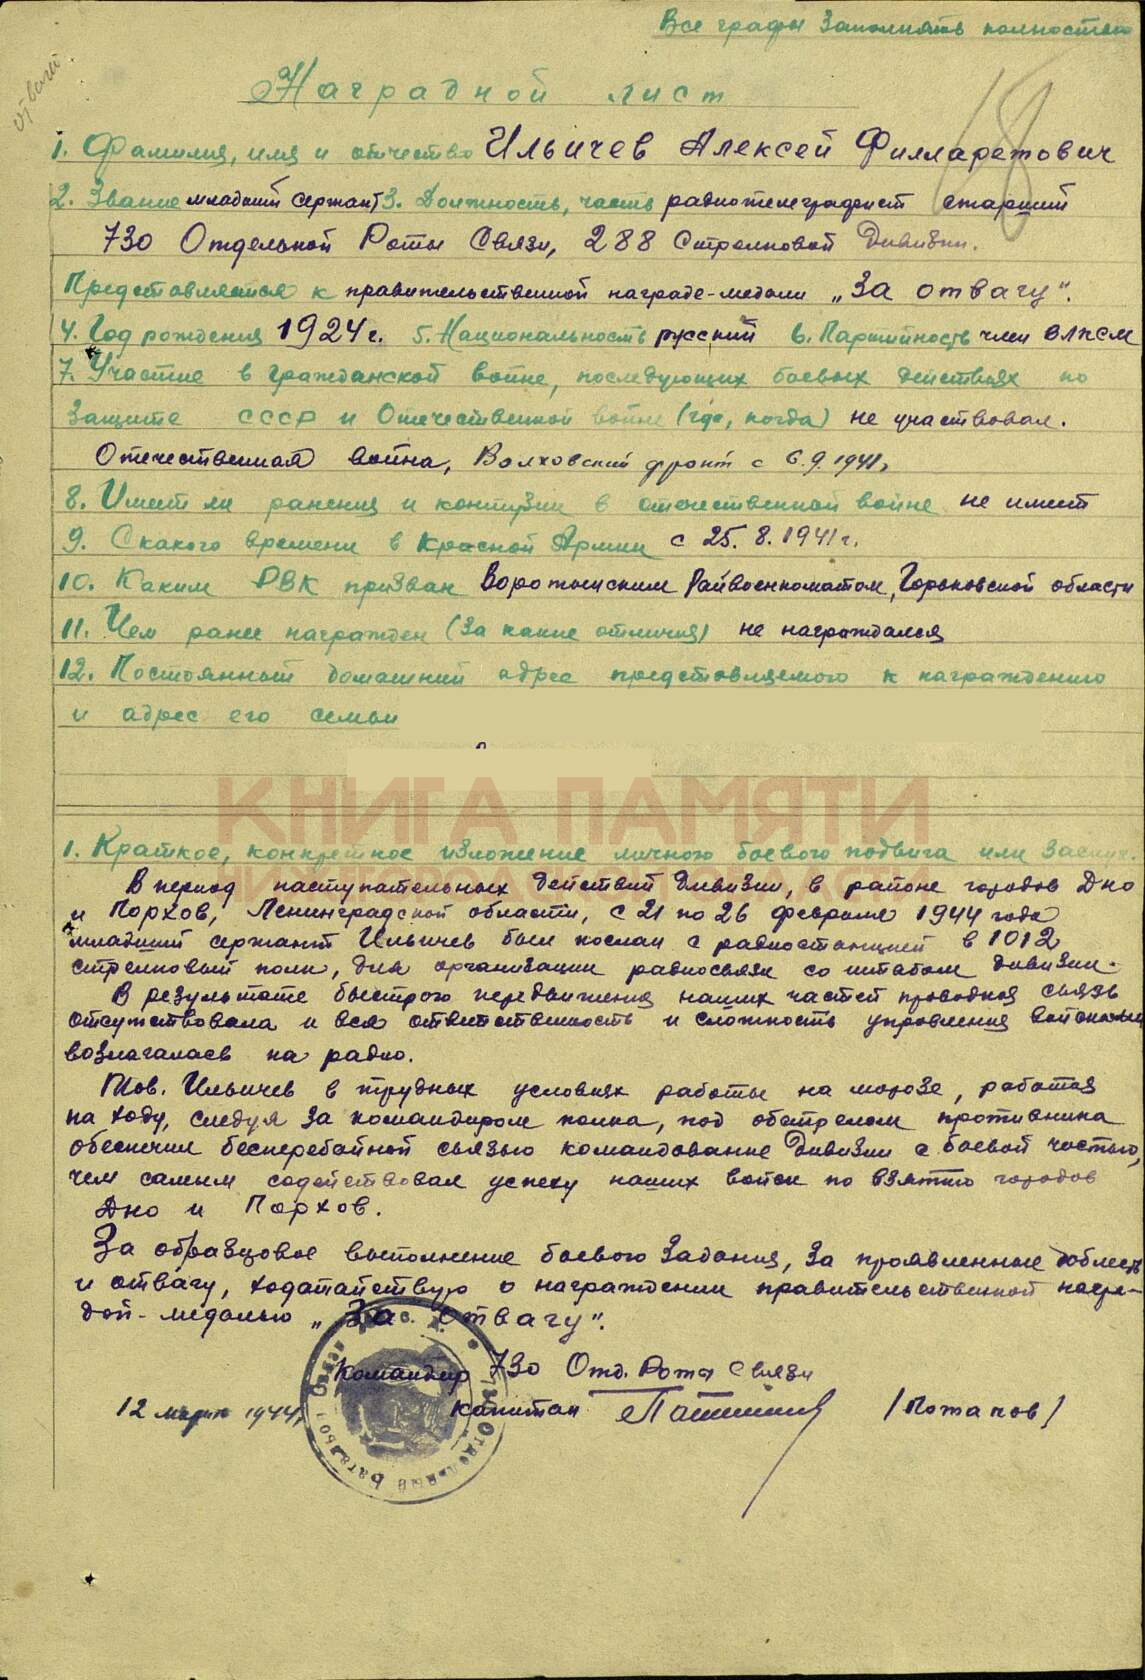 Все графы заполнять полностью
отвагу
18
Наградной лист
1. Фамилия, имя и отчество Ильичев Алексей Филларетович
2. Звание младший сержант 3. Должность, часть радиотелеграфист старший
730 Отдельной Роты Связи, 288 Стрелковой Дивизии.
Представляется к правительственной награде-медали „За отвагу".
4. Год рождения 1924 г. 5. Национальность русский 6. Партийность член ВЛКСМ
7. Участие в гражданской войне, последующих боевых действиях по
защите СССР и Отечественной войне (где, когда) не участвовал.
Отечественная война, Волховский фронт с 6.9.1941г.
8. Имеет ли ранения и контузии в отечественной войне не имеет
9. С какого времени в Красной Армии с 25.8.1941г.
10. Каким РВК призван Воротынским Райвоенкоматом, Горьковской области
11. Чем ранее награжден (за какие отличия) не награждался
12. Постоянный домашний адрес представляемого к награждению
и адрес его семьи
КНИГА ПАМЯТИ
1. Краткое, конкретное изложение личного боевого подвига или заслуг.
В период наступательных действий дивизии, в районе городов Дно
и Порхов, Ленинградской области, с 21 по 26 февраля 1944 года
младший сержант Ильичев был послан с радиостанцией в 1012
стрелковый полк, для организации радиосвязи со штабом дивизии.
В результате быстрого передвижения наших частей проводная связь
отсутствовала и вся ответственность и сложность управления войсками
возлагалась на радио.
Тов. Ильичев в трудных условиях работы на морозе, работая
на ходу, следуя за командиром полка, под обстрелом противника
обеспечил бесперебойной связью командование Дивизии с боевой частью,
чем самым содействовал успеху наших войск по взятию городов
Дно и Порхов.
За образцовое выполнение боевого задания, за проявленные доблесть
и отвагу, ходатайствую о награждении правительственной награ-
дой-медалью „За отвагу".
Командир 730 Отд. Роты Связи
12 марта 1944г. капитан /Потапов/
Отдельный Батальон